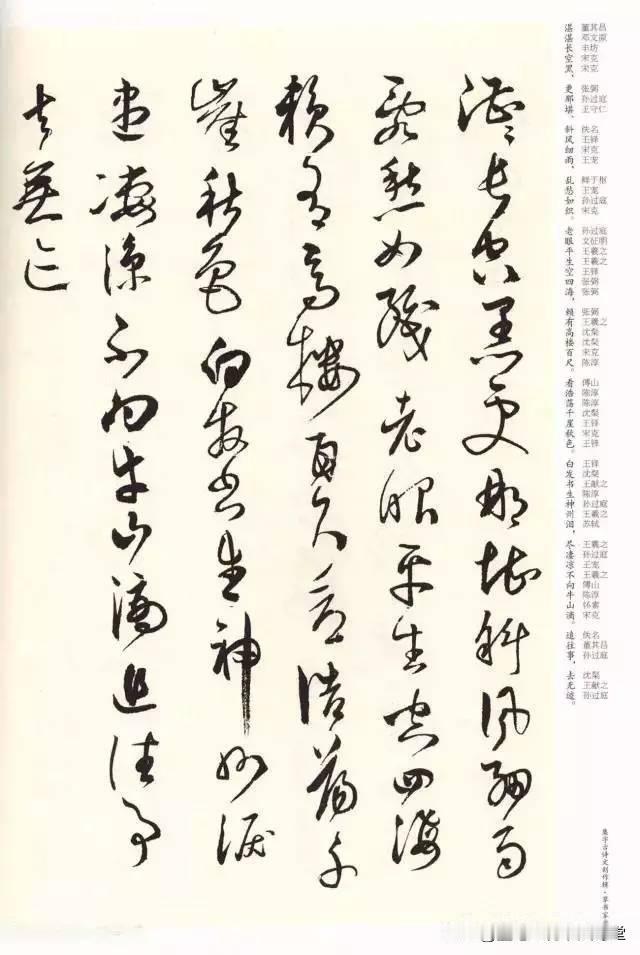 湛湛長空黑更那堪斜風細雨
亂愁如織老眼平生空四海
賴有高樓百尺看浩蕩千
崖秋色白髮書生神州淚
盡凄涼不向牛山滴追往事
去無迹
湛湛长空黑，
董其昌 邓文原 丰坊 宋克 宋克
更那堪、
张弼 孙过庭 王守仁
斜风细雨，
佚名 王铎 宋克 王宠
乱愁如织。
鲜于枢 王宠 孙过庭 宋克
老眼平生空四海，
孙过庭 文征明 王羲之 王羲之 王铎 张弼 张弼
赖有高楼百尺。
张弼 王羲之 沈粲 沈粲 宋克 陈淳
看浩荡千崖秋色。
傅山 陈淳 陈淳 沈粲 王铎 宋克 王铎
白发书生神州泪，
王铎 沈粲 王献之 陈淳 孙过庭 王羲之 苏轼
尽凄凉不向牛山滴。
王羲之 孙过庭 王宠 王羲之 傅山 陈淳 怀素 宋克
追往事，
佚名 董其昌 孙过庭
去无迹。
沈粲 王献之 孙过庭
集字古诗文创作模·草书家
堂